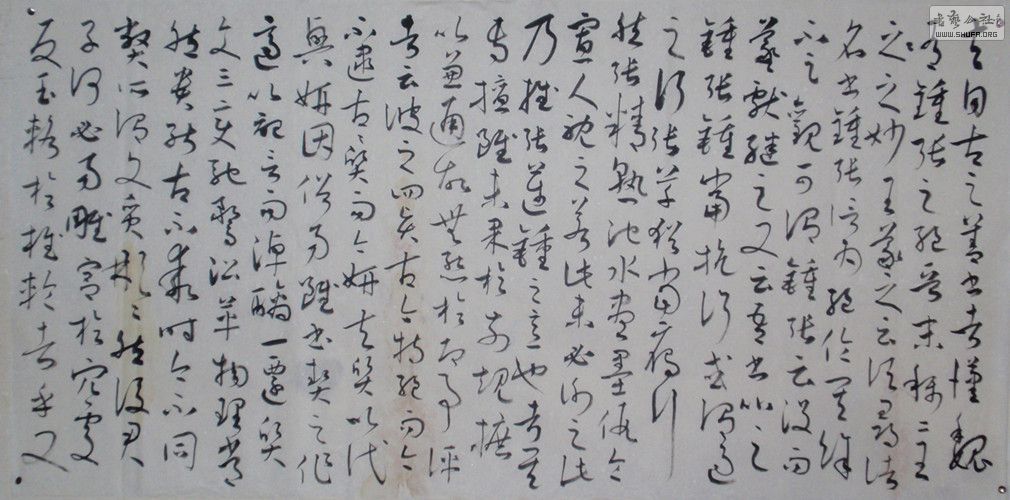 夫自古之善書者漢魏
有鍾張之絕晉末稱二王
之妙王羲之云頃尋諸
名書鍾張信為絕倫其餘
不足觀可謂鍾張云沒而
羲獻繼之又云吾書比之
鍾張鍾當抗行或謂過
之張草猶當雁行
然張精熟池水盡墨假令
寡人耽之若此未必謝之此
乃推張邁鍾之意也考其
專擅雖未果於前規摭
以兼通故無慚於即事評
者云彼之四賢古今特絕而今
不逮古古質而今妍夫質以代
興妍因俗易雖書契之作
適以記言而淳醨一遷質
文三變馳騖沿革物理常
然貴能古不乖時今不同
弊所謂文質彬彬然後君
子何必易雕宮於穴處
反玉輅於椎輪者乎又
書藝公社
WWW.SHUFA.ORG